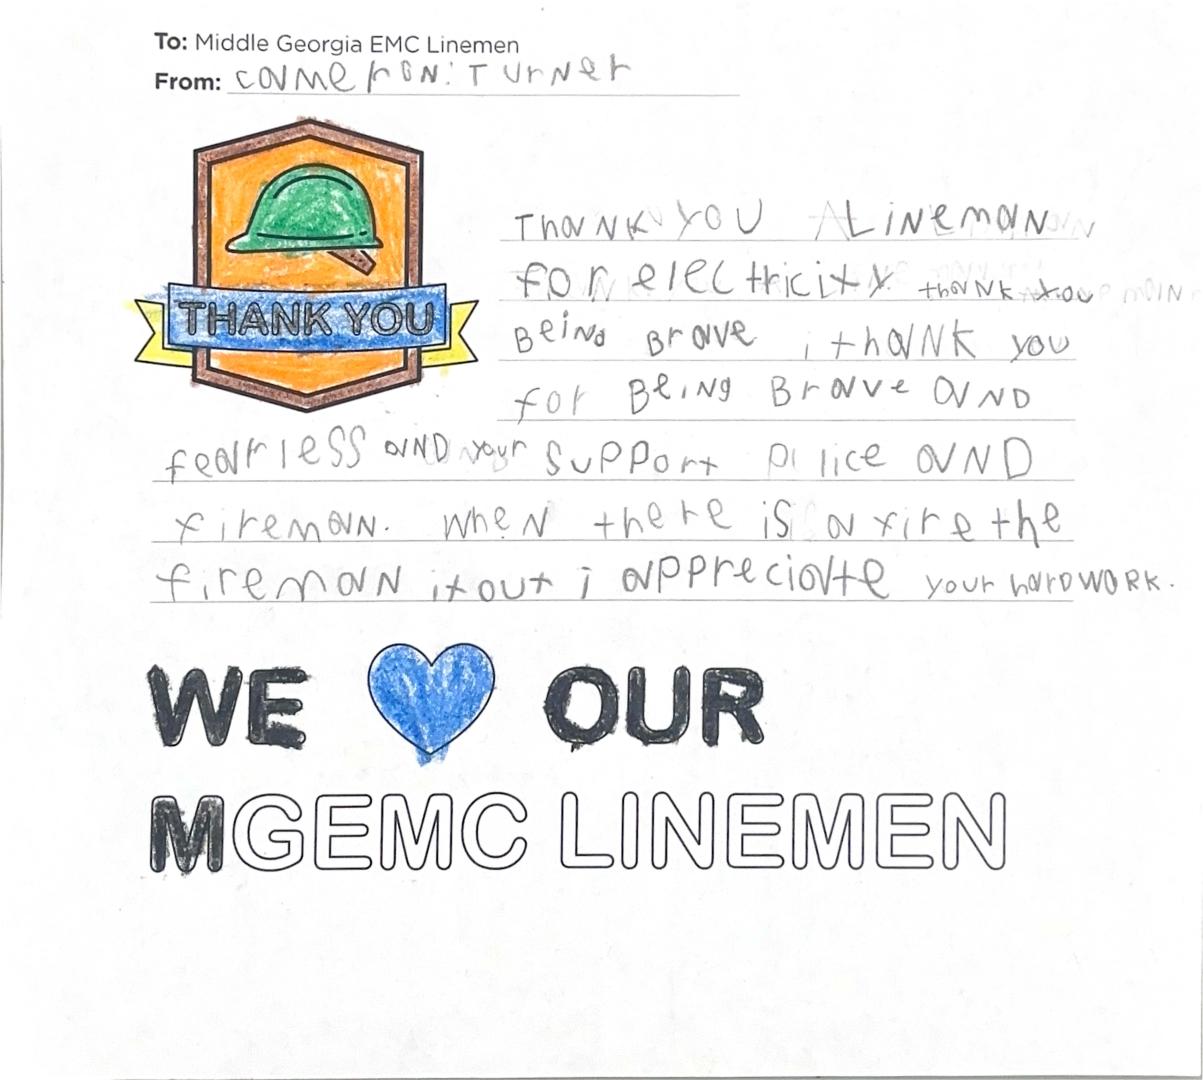 To: Middle Georgia EMC Linemen
From: cameron: Turner
THANK YOU
Thank you A Lineman
for electricity thank you
Being Brave i thank you
for Being Brave AND
fearless AND your Support police AND
fireman. When there is a fire the
fireman it out i appreciate your hardWORK.
WE OUR
MGEMC LINEMEN